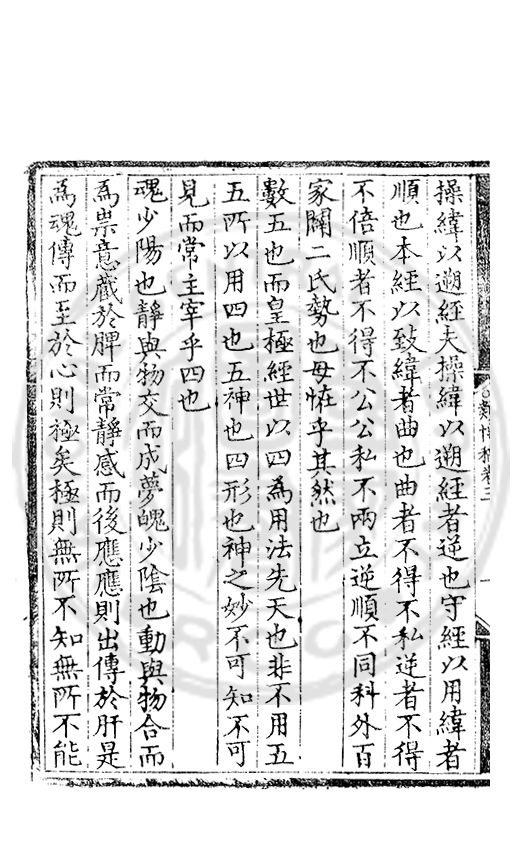 操緯以遡經夫操緯以遡經者逆也守經以用緯者
順也本經以致緯者曲也曲者不得不私逆者不得
不倍順者不得不公公私不兩立逆順不同科外百
家闢二氏勢也毋恠乎其然也
數五也而皇極經世以四為用法先天也非不用五
五所以用四也五神也四形也神之妙不可知不可
見而常主宰乎四也
魂少陽也靜與物交而成夢魄少陰也動與物合而
為祟意藏於脾而常靜感而後應應則出傳於肝是
為魂傳而至於心則極矣極則無所不知無所不能
卷三
一